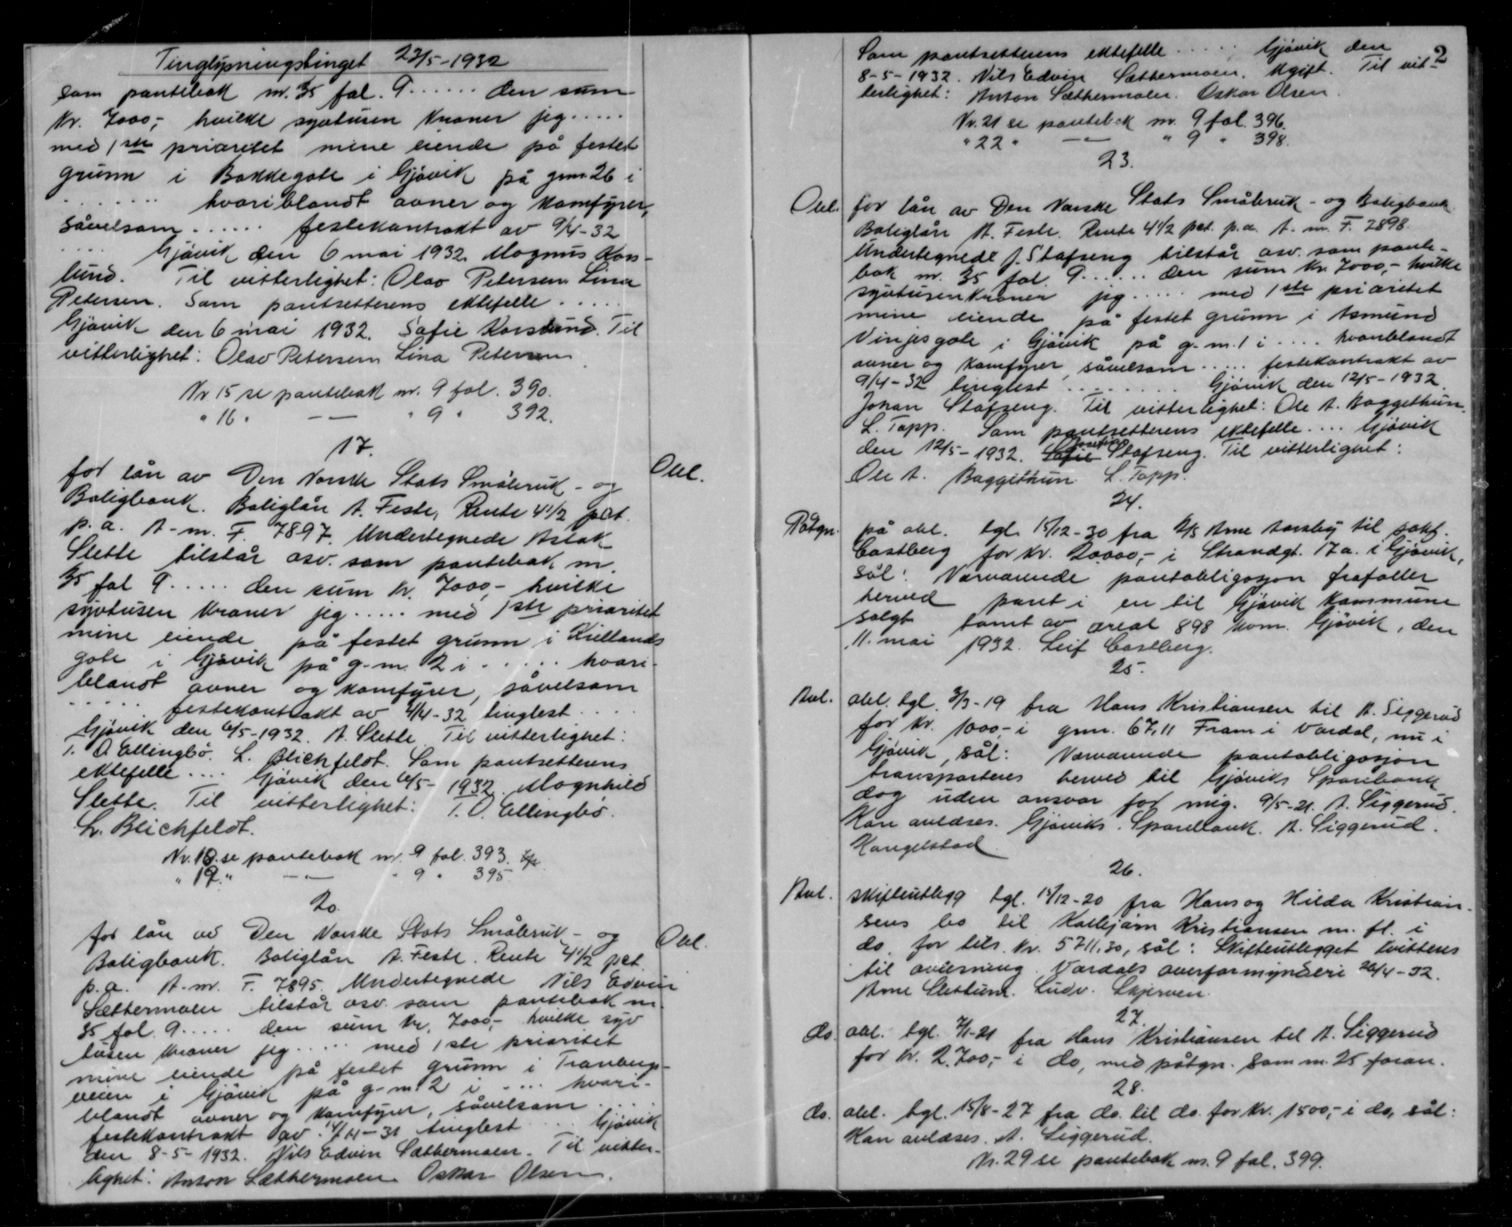 Tinglysningstinget 23/5-1932
som pantebok nr. 35 fol. 9 ..... den sum
kr. 7000,- hvilke syvtusen kroner jeg .....
med 1ste prioritet mine eiende på festet
grunn i Bakkegate i Gjøvik på gnr. 26 i
....... hvoriblandt ovner og komfyrer,
såvelsom ...... festekontrakt av 9/4-32
.... Gjøvik den 6 mai 1932. Magnus Kors-
lund. Til vitterlighet: Olav Petersen Lina
Petersen. Som pantsetterens ektefelle .....
Gjøvik den 6 mai 1932. Sofie Korslund. Til
vitterlighet: Olav Petersen Lina Petersen
Nr 15 se pantebok nr. 9 fol. 390.
" 16 " — — " 9 " 392.
17.
Obl.
for lån av Den Norske Stats Småbruk- og
Boligbank. Boliglån A. Feste, Rente 4 1/2 pct.
p.a. A-nr. F. 7897. Undertegnede Aslak
Slette tilstår osv. som pantebok nr.
35 fol 9 ..... den sum kr. 7000,- hvilke
syvtusen kroner jeg ..... med 1ste prioritet
mine eiende på festet grunn i Kiellands
gate i Gjøvik på g-nr. 2 i ...... hvori-
blandt ovner og komfyrer, såvelsom
...... festekontrakt av 4/4-32 tinglest ....
Gjøvik den 6/5-1932. A. Slette Til vitterlighet:
T. O. Ellingbø. L. Blichfeldt. Som pantsetterens
ektefelle .... Gjøvik den 6/5-1932. Magnhild
Slette. Til vitterlighet: T. O. Ellingbø.
L. Blichfeldt.
Nr. 18 se pantebok nr. 9 fol. 393.
" 19 " — — " 9 " 395
20.
Obl.
for lån av Den Norske Stats Småbruk- og
Boligbank. Boliglån A. Feste. Rente 4 1/2 pct.
p.a. A-nr. F. 7895. Undertegnede Nils Edvin
Sæthermoen tilstår osv. som pantebok nr.
35 fol. 9 ..... den sum kr. 7000,- hvilke syv
tusen kroner jeg ..... med 1ste prioritet
mine eiende på festet grunn i Tranberg-
veien i Gjøvik på g-nr. 2 i .... hvori-
blandt ovner og komfyrer, såvelsom ....
festekontrakt av 14/11-31 tinglest ... Gjøvik
den 8-5-1932. Nils Edvin Sæthermoen. Til vitter-
lighet: Anton Sæthermoen Oskar Olsen.
2
Som pantsetterens ektefelle ..... Gjøvik den
8-5-1932. Nils Edvin Sæthermoen. Ugift. Til vit-
terlighet: Anton Sæthermoen. Oskar Olsen.
Nr. 21 se pantebok nr. 9 fol. 396.
" 22 " — — " 9 " 398.
23.
Obl. for lån av Den Norske Stats Småbruk- og Boligbank
Boliglån A. Feste. Rente 4 1/2 pct. p.a. A. nr. F. 7898.
Undertegnede J. Stafseng tilstår osv. som pante-
bok nr. 35 fol. 9 ..... den sum kr. 7000,- hvilke
syvtusen kroner jeg ..... med 1ste prioritet
mine eiende på festet grunn i Asmund
Vinjesgate i Gjøvik på g-nr. 1 i .... hvoriblandt
ovner og komfyrer, såvelsom ..... festekontrakt av
9/4-32 tinglest ........ Gjøvik den 12/5-1932.
Johan Stafseng. Til vitterlighet: Ole A. Baggethun.
L. Topp. Som pantsetterens ektefelle .... Gjøvik
den 12/5-1932. Sofie Stafseng. Til vitterlighet:
Ole A. Baggethun L. Topp.
24.
Påtgn. på obl. tgl. 15/12-30 fra A/S Arne Aarsby til sakf.
Castberg for kr. 20000,- i Strandgt. 17a. i Gjøvik,
sål: Nærværende pantobligasjon frafaller
herved pant i en til Gjøvik kommune
solgt tomt av areal 898 kvm. Gjøvik, den
11. mai 1932. Leif Castberg.
25.
Avl. obl. tgl. 3/3-19 fra Hans Kristiansen til A. Siggerud
for kr. 1000,- i gnr. 67,11 Fram i Vardal, nu i
Gjøvik, sål: Nærværende pantobligasjon
transporteres herved til Gjøviks Sparebank
dog uden ansvar for mig. 9/5-21. A. Siggerud.
Kan avlæses. Gjøviks Sparebank. A. Siggerud.
Haugelstad
26.
Avl. skifteutlegg tgl. 15/12-20 fra Hans og Hilda Kristian-
sens bo til Kolbjørn Kristiansen m. fl. i
do. for tils. kr. 5711.30, sål: Skifteutlegget kvitteres
til avlesning. Vardals overformynderi 26/4-32.
Arne Slettum. Ludv. Skjerven.
27
do. obl. tgl. 7/1-21 fra Hans Kristiansen til A. Siggerud
for kr. 2.700,- i do, med påtgn. som nr. 25 foran.
28.
do. obl. tgl. 15/8-27 fra do. til do. for kr. 1500,- i do, sål:
Kan avlæses. A. Siggerud.
Nr. 29 se pantebok nr. 9 fol. 399.